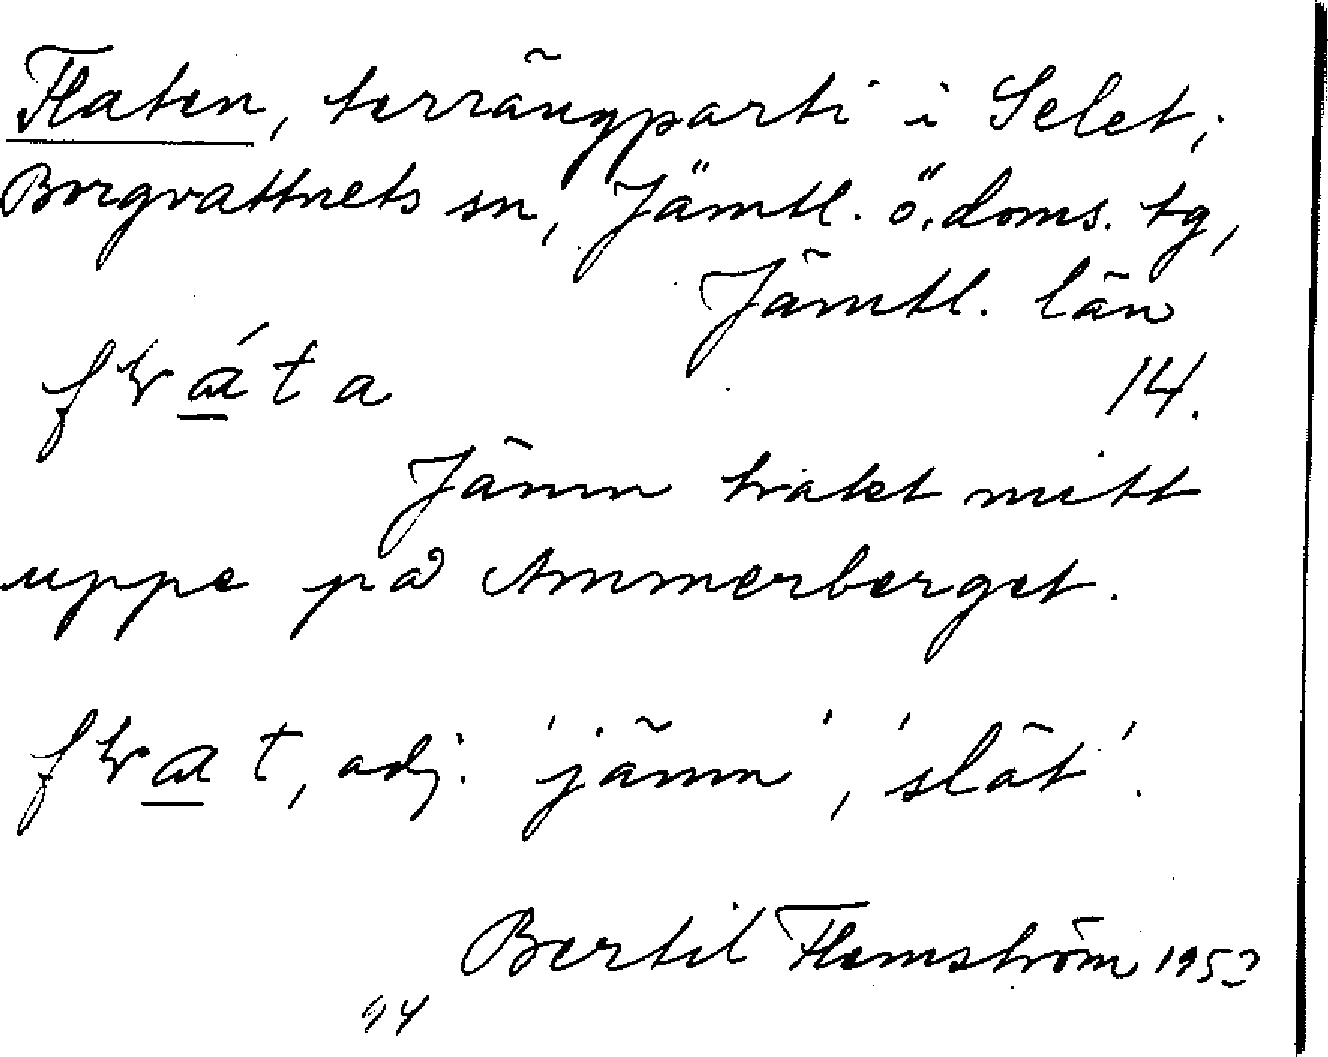 Flaten, terrängparti i Selet,
Borgvattnets sn, Jämtl. ö. doms. tg,
Jämtl. län
14.
Jämn trakt mitt
uppe på Ammerberget.
adj. 'jämn', 'slät'.
Bertil Flemström 1953
94